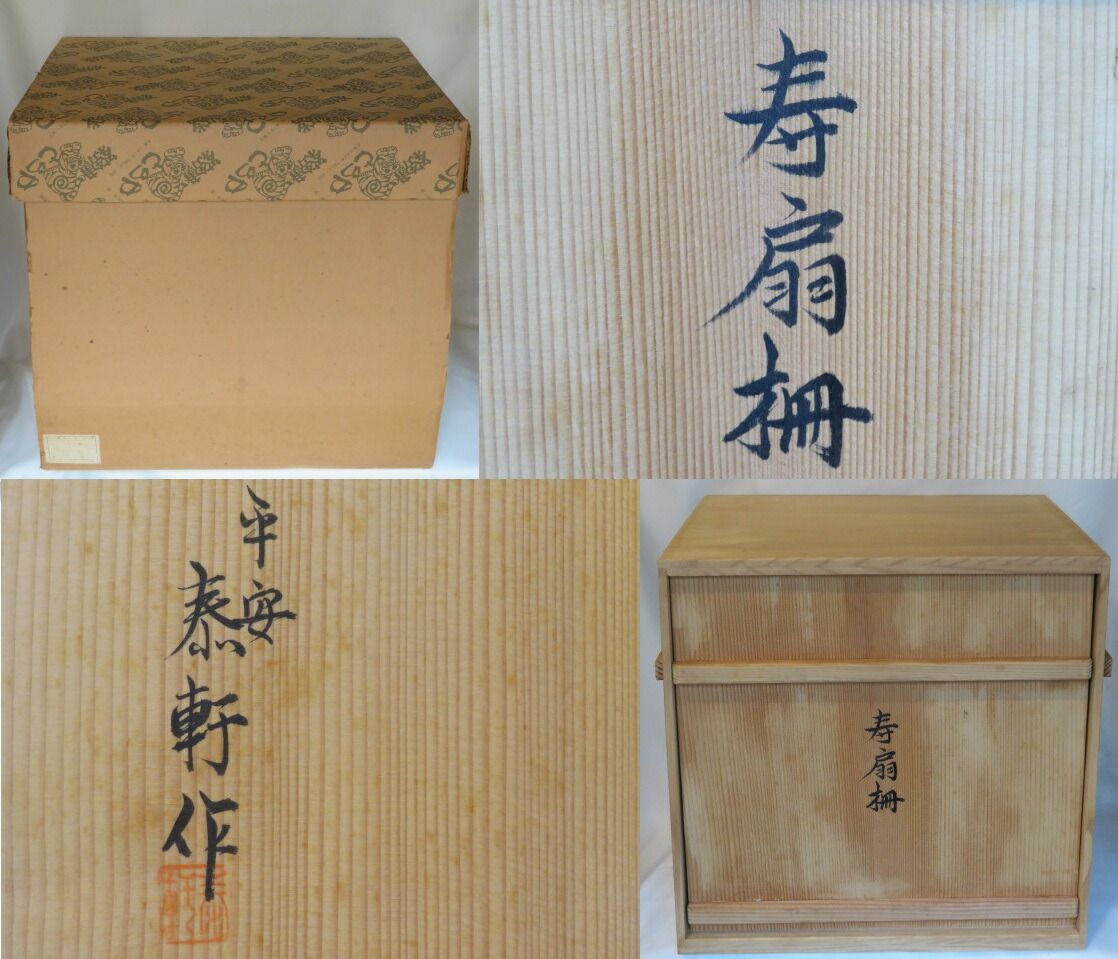 寿扇柵
平安
泰軒作
寿扇柵